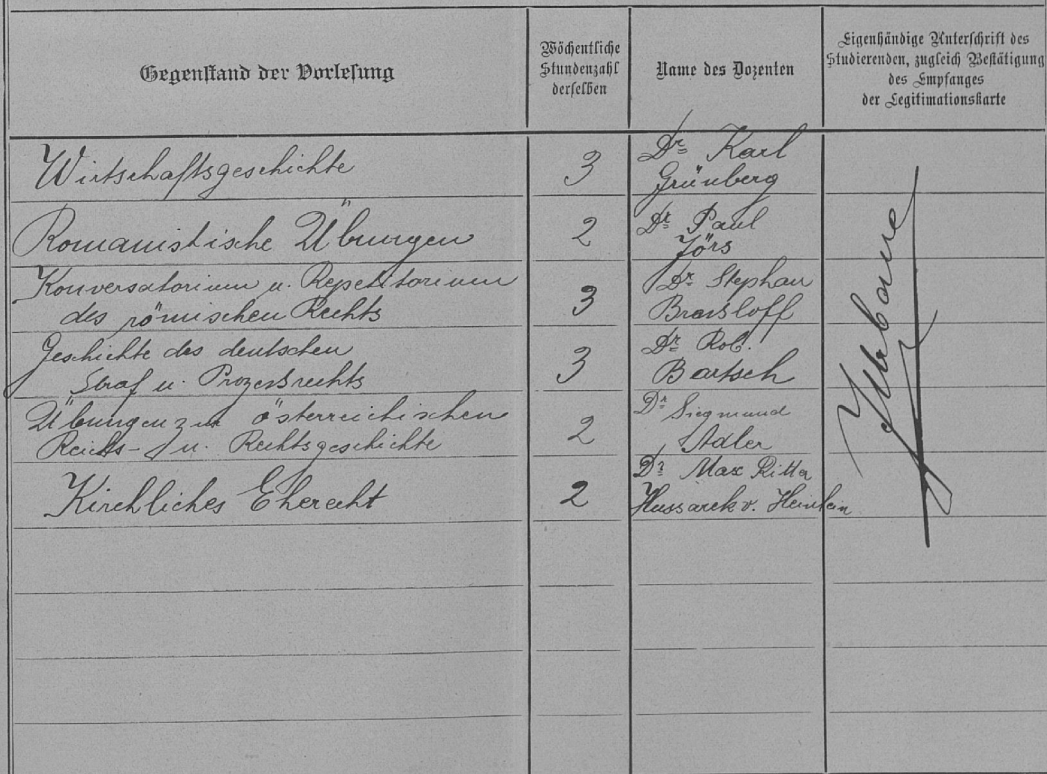 Gegenstand der Vorlesung
Wöchentliche
Stundenzahl
derselben
Name des Dozenten
Eigenhändige Unterschrift des
Studierenden, zugleich Bestätigung
des Empfanges
der Legitimationskarte
Wirtschaftsgeschichte 3 Dr. Karl
Grünberg
Romanistische Übungen 2 Dr. Paul
Jörs
Konversatorium u. Repetitorium Dr. Stephan
des römischen Rechts 3 Brassloff
Geschichte des deutschen Dr. Rob.
Straf u. Prozessrechts 3 Bartsch
Übungen zur österreichischen Dr. Siegmund
Reichs- u. Rechtsgeschichte 2 Adler
Dr. Max Ritter
Kirchliches Eherecht 2 Hussarek v. Heinlein